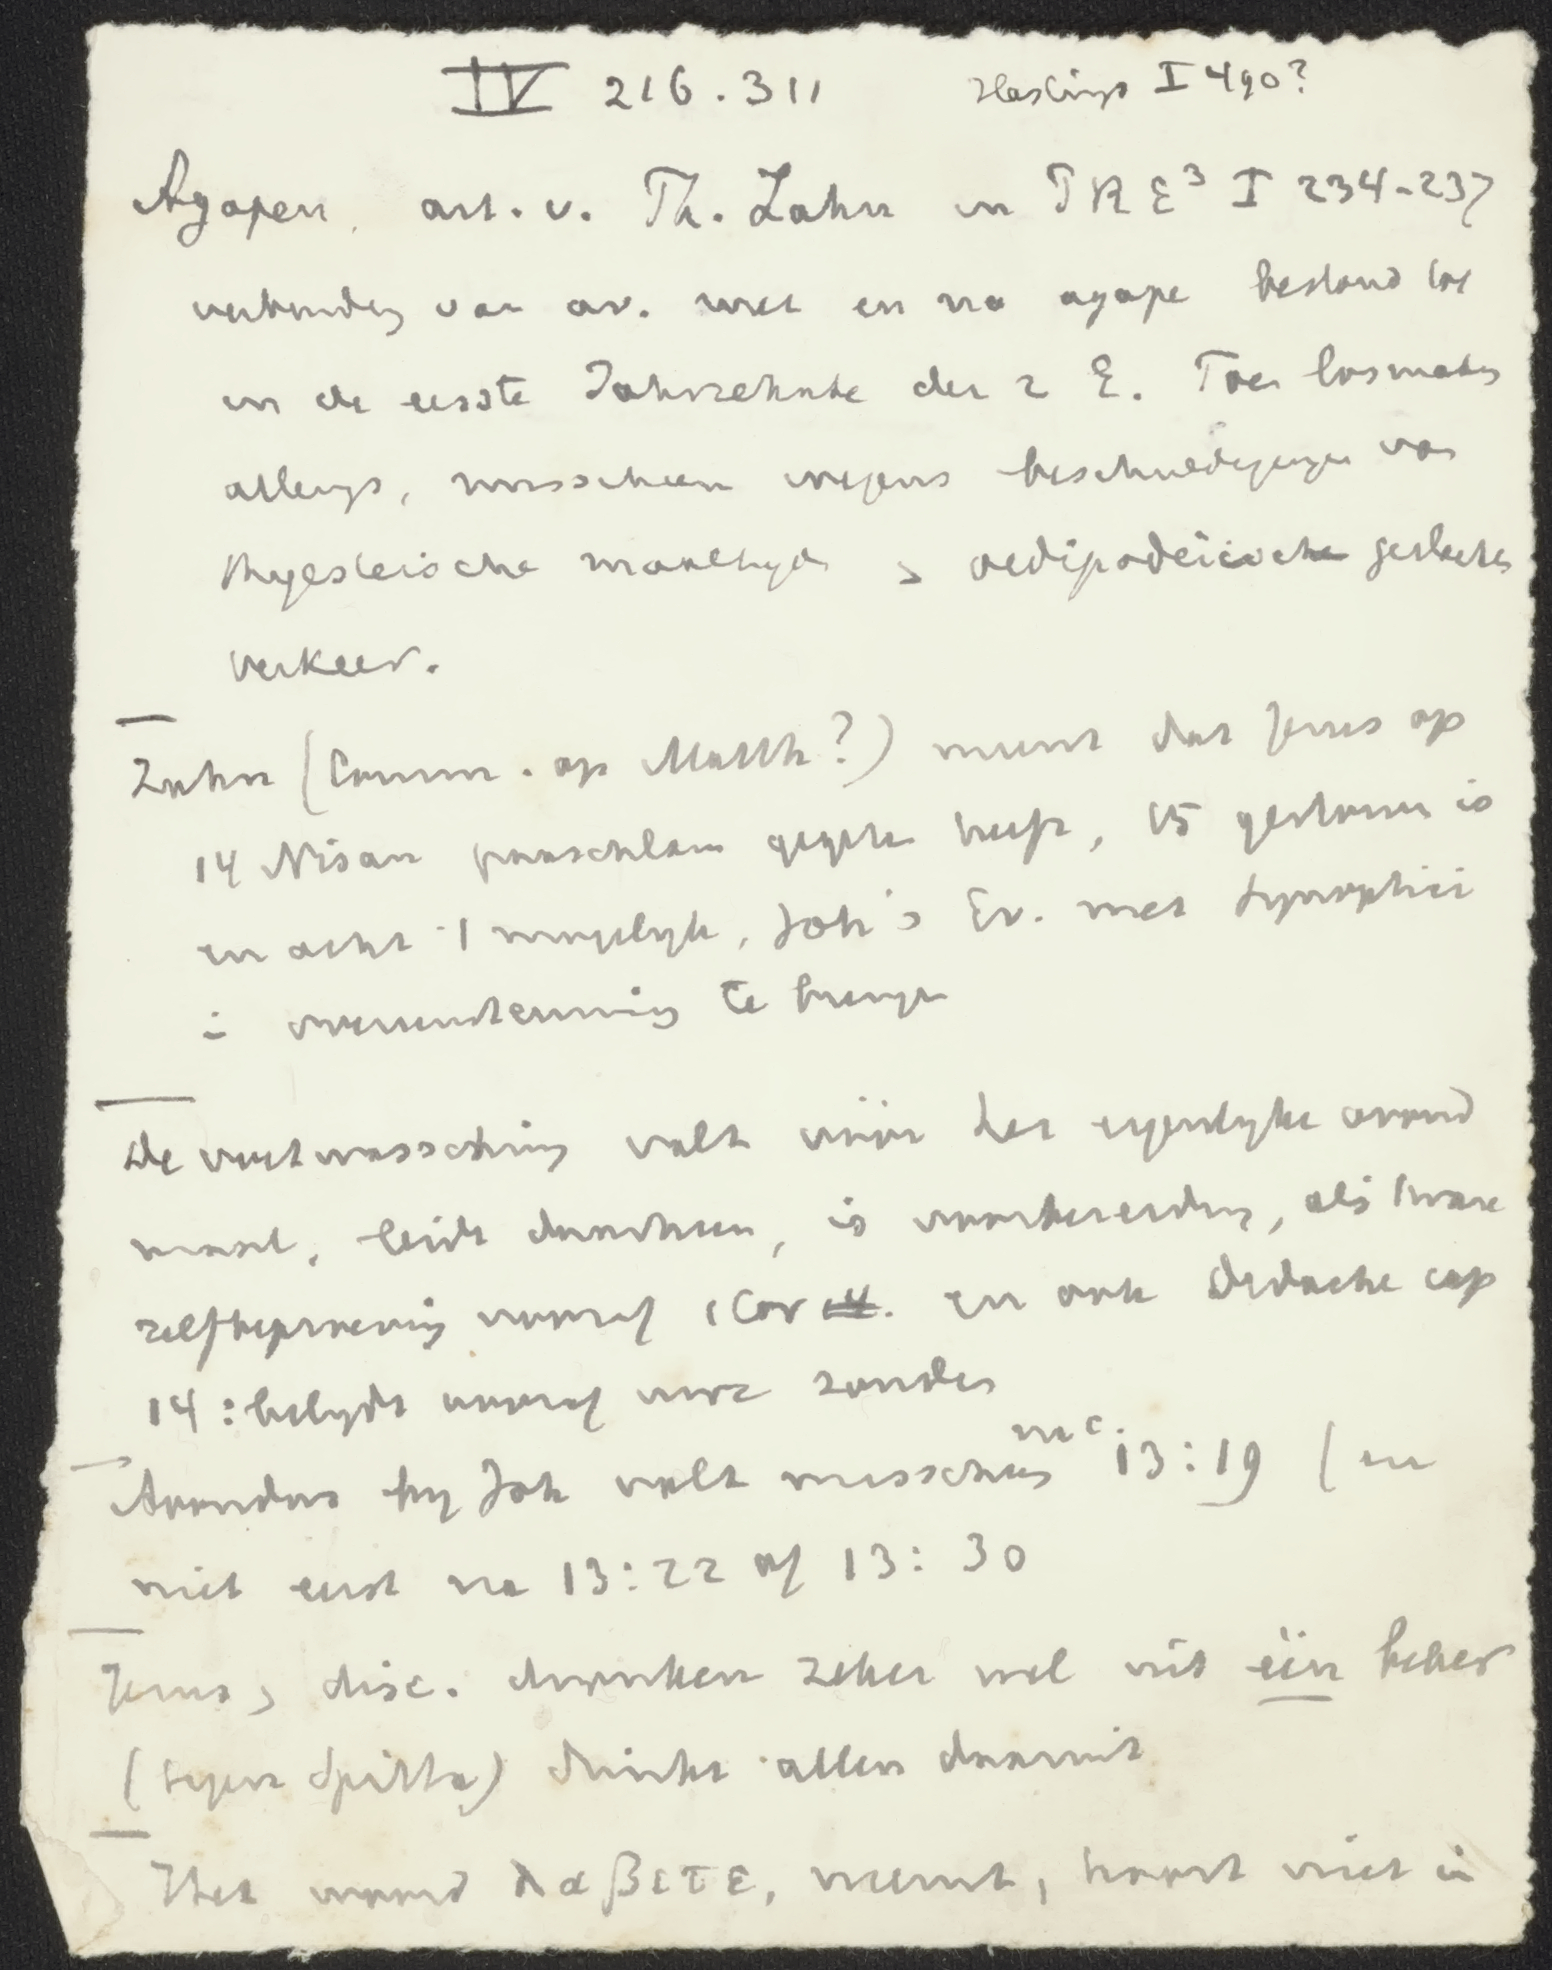 IV 216.311 Hastings I 490?
Agapen, art. v. Th. Zahn in PRE³ I 234-237
verbinding van av. met en na agape bestond tot
in de eerste Jahrzehnte der 2 E. Toen losmaking
allengs, misschien wegens beschuldigingen van
thyesteische maaltijd oedipodeïsche geslachts
verkeer.
Zahn (Comm. op Matth?) meent dat Jezus op
14 Nisan paaschlam gegeten heeft, 15 gestorven is
en acht 't mogelijk, Joh's Ev. met Synoptici
in overeenstemming te brengen
De voetwassching valt vóór het eigenlijke avond
maal, leidt daarheen, is voorbereiding, als 't ware
zelfbeproeving vooraf 1 Cor. en ook Didache cap
14: belijdt vooraf uwe zonden
na c.
Avondms bij Joh valt misschien 13:19 (en
niet eerst na 13:22 of 13:30
Jezus, disc. dronken zeker wel uit één beker
(tegen Spitta) drinkt allen daaruit
Het woord λαβετε, neemt, hoort niet in